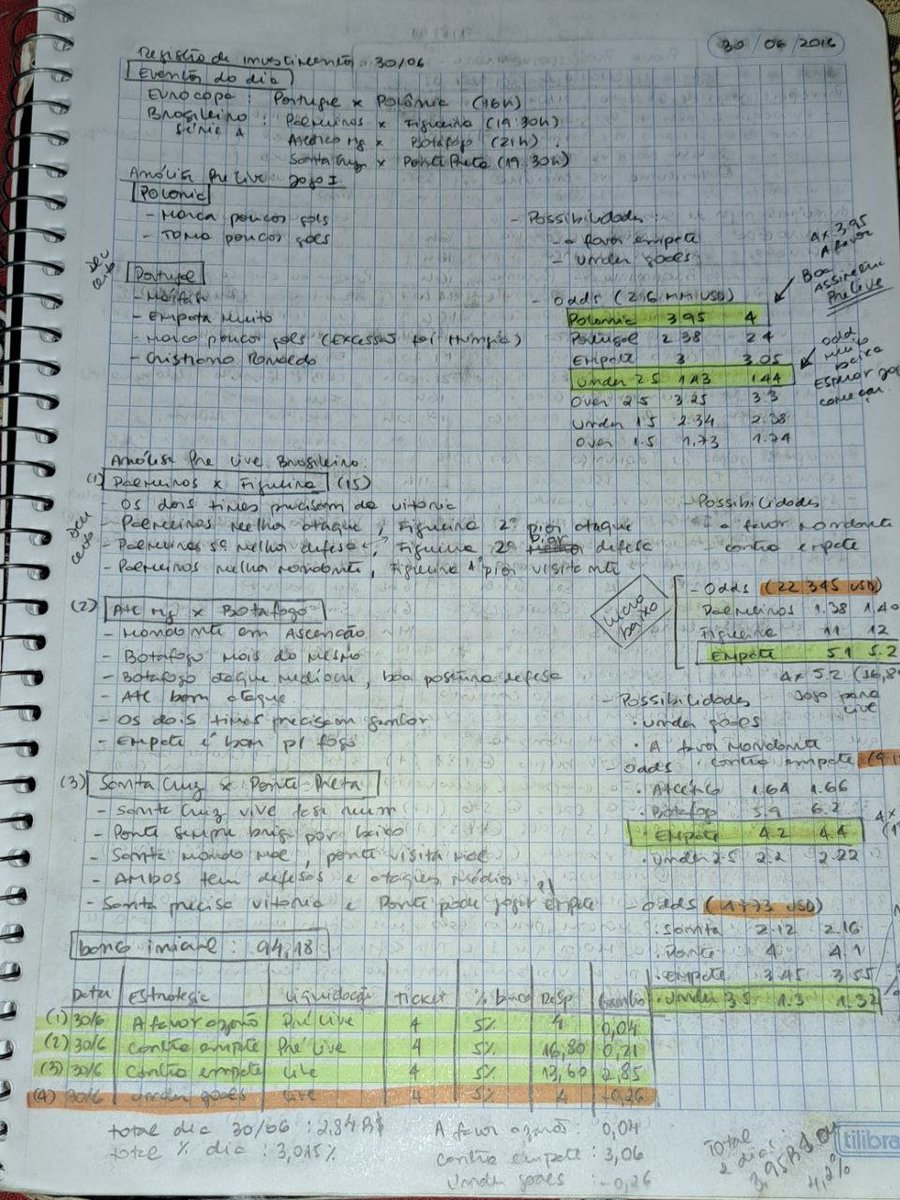 30/06/2016
Registro de investimento 30/06
Eventos do dia
Eurocopa: Portugal x Polônia (16h)
Brasileiro: Palmeiras x Figueira (19:30h)
Série A
Atlético Mg x Botafogo (21h)
Santa Cruz x Ponte Preta (19:30h)
Análise Pré Live Jogo I
Polonia
- Marca poucos gols
- Toma poucos gols
- Possibilidades:
- a favor empate
- under goals
4x 3.95
A favor
Deu certo
Portugal
- Empata muito
- Marca poucos gols (Excessão foi Hungria)
- Cristiano Ronaldo
- Odds (2.6 MM USD)
Polonia 3.95 4
Portugal 2.38 2.4
Empate 3 3.05
Under 2.5 1.43 1.44
Over 2.5 3.25 3.3
Under 1.5 2.34 2.38
Over 1.5 1.73 1.74
Boa
Pré Live
odd
muito
baixa
Esperar jogo
começar
Análise Pré Live Brasileiro:
(1) Palmeiras x Figueira (15)
- Os dois times precisam da vitoria
- Palmeiras melhor ataque, Figueira 2º pior ataque
- Palmeiras 5ª melhor defesa, Figueira 2ª pior defesa
- Palmeiras melhor mandante, Figueira 1º pior visitante
Deu certo
- Possibilidades
- a favor mandante
- contra empate
lucro
baixo
- Odds (22 345 USD)
Palmeiras 1.38 1.40
Figueira 11 12
Empate 5.1 5.2
4x 5.2 (16,8
Jogo para
live
(2) Atl Mg x Botafogo
- Mandante em Ascenção
- Botafogo mais do mesmo
- Botafogo ataque mediocre, boa postura defesa
- Atl bom ataque
- Os dois times precisam ganhar
- Empate é bom p/ fogo
- Possibilidades
· Under goals
· A favor mandante
· contra empate
- Odds
· Atlético 1.64 1.66
· Botafogo 5.9 6.2
· Empate 4.2 4.4
· Under 2.5 2.2 2.22
(3) Santa Cruz x Ponte Preta
- Santa Cruz vive fase ruim
- Ponte sempre briga por baixo
- Santa manda mal, ponte visita mal
- Ambos tem defesas e ataques médios
- Santa precisa vitoria e Ponte pode jogar empate
- Odds (1773 USD)
· Santa 2.12 2.16
· Ponte 4 4.1
· Empate 3.45 3.55
· Under 3.5 1.3 1.32
banco inicial: 94,18
Data Estratégia Liquidação Ticket % banca Resp Ganho
(1) 30/6 A favor azarão Pré Live 4 5% 4 0,04
(2) 30/6 contra empate Pré Live 4 5% 16,80 0,21
(3) 30/6 contra empate Live 4 5% 13,60 2,85
(4) 30/6 under goals Live 4 5% 4 -0,26
total dia 30/06: 2,84 R$
total % dia: 3,015%
A favor azarão: 0,04
contra empate: 3,06
Under goals: -0,26
Total
2 dias:
4,2%
tilibra